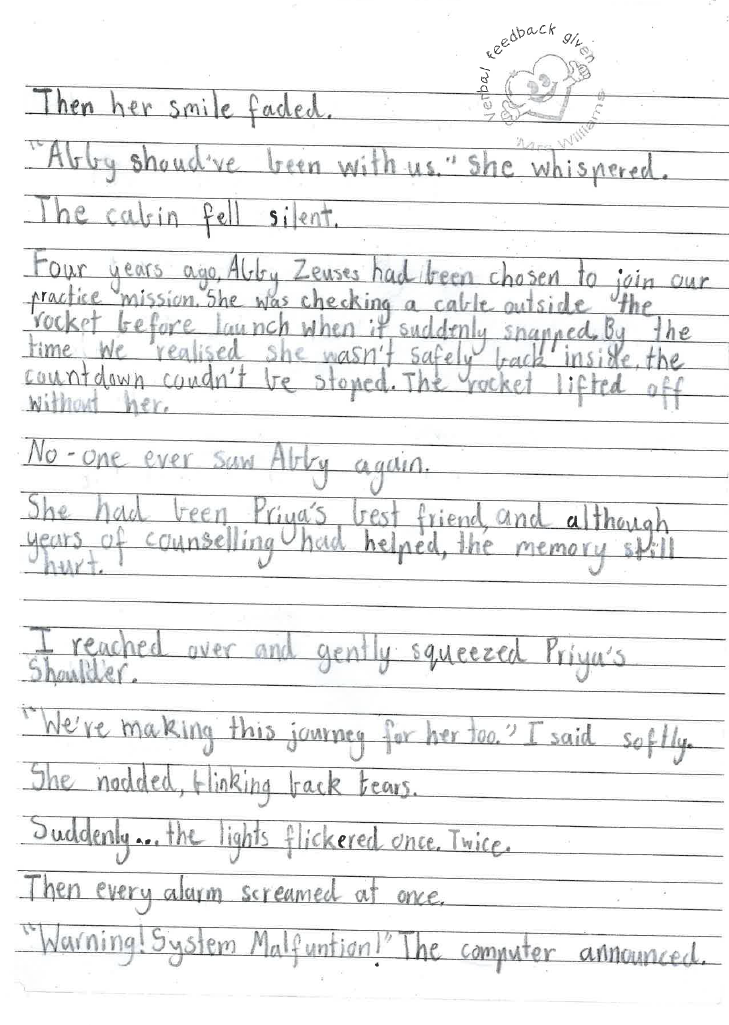 Verbal feedback given
Mrs Williams
Then her smile faded.
"Abby shoud've been with us." She whispered.
The cabin fell silent.
Four years ago, Abby Zeuses had been chosen to join our
practice mission. She was checking a cable outside the
rocket before launch when it suddenly snapped. By the
time we realised she wasn't safely back inside, the
countdown coudn't be stoped. The rocket lifted off
without her.
No-one ever saw Abby again.
She had been Priya's best friend, and although
years of counselling had helped, the memory still
hurt.
I reached over and gently squeezed Priya's
Shoulder.
"We're making this journey for her too." I said softly.
She nodded, blinking back tears.
Suddenly... the lights flickered once. Twice.
Then every alarm screamed at once.
"Warning! System Malfuntion!" The computer announced.